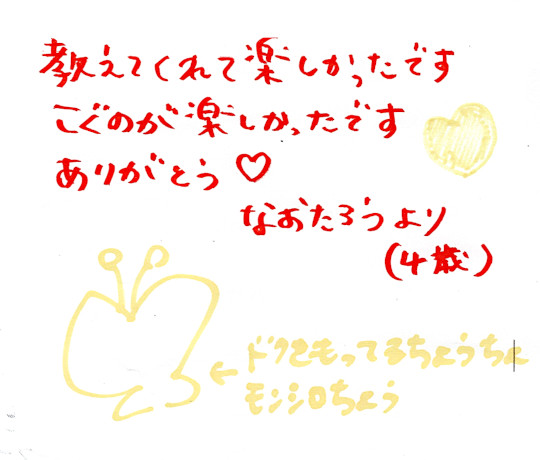 教えてくれて楽しかったです
こぐのが楽しかったです
ありがとう♡
なおたろうより
(4歳)
←ドクをもってるちょうちょ
モンシロちょう